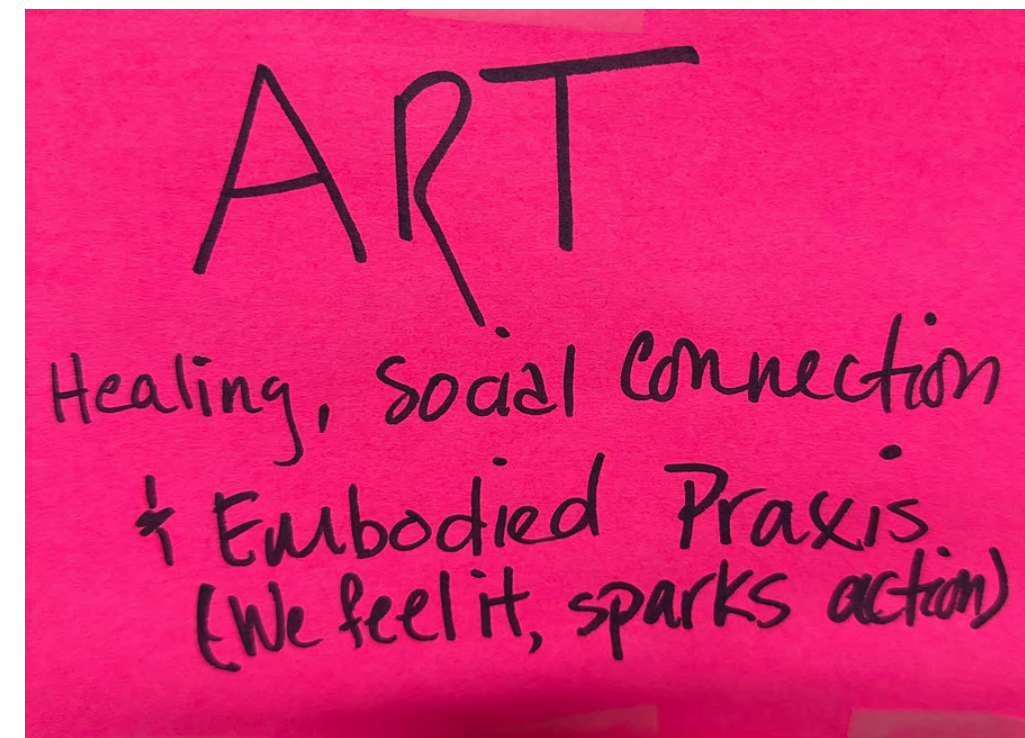 ART
Healing, Social Connection
& Embodied Praxis
(We feel it, sparks action)